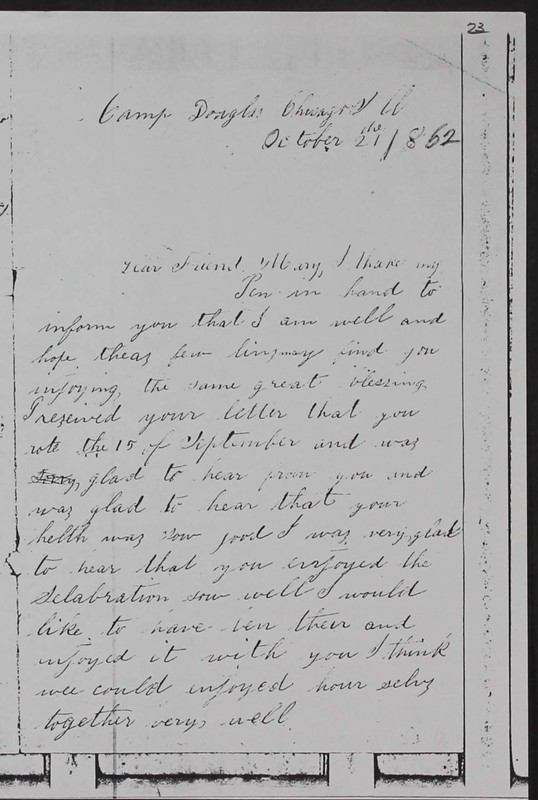 23
Camp Douglas Chicago Ill
October 21th 1862
Dear Friend Mary, I thake my
Pen in hand to
inform you that I am well and
hope theas few lins may find you
injoying the same great blessing
I reseived your letter that you
rote the 15 of September and was
glad to hear from you and
was glad to hear that your
helth was sow good I was very glad
to hear that you enjoyed the
Selabration sow well I would
like to have ben their and
injoyed it with you I think
wee could enjoyed hour selvs
together very well